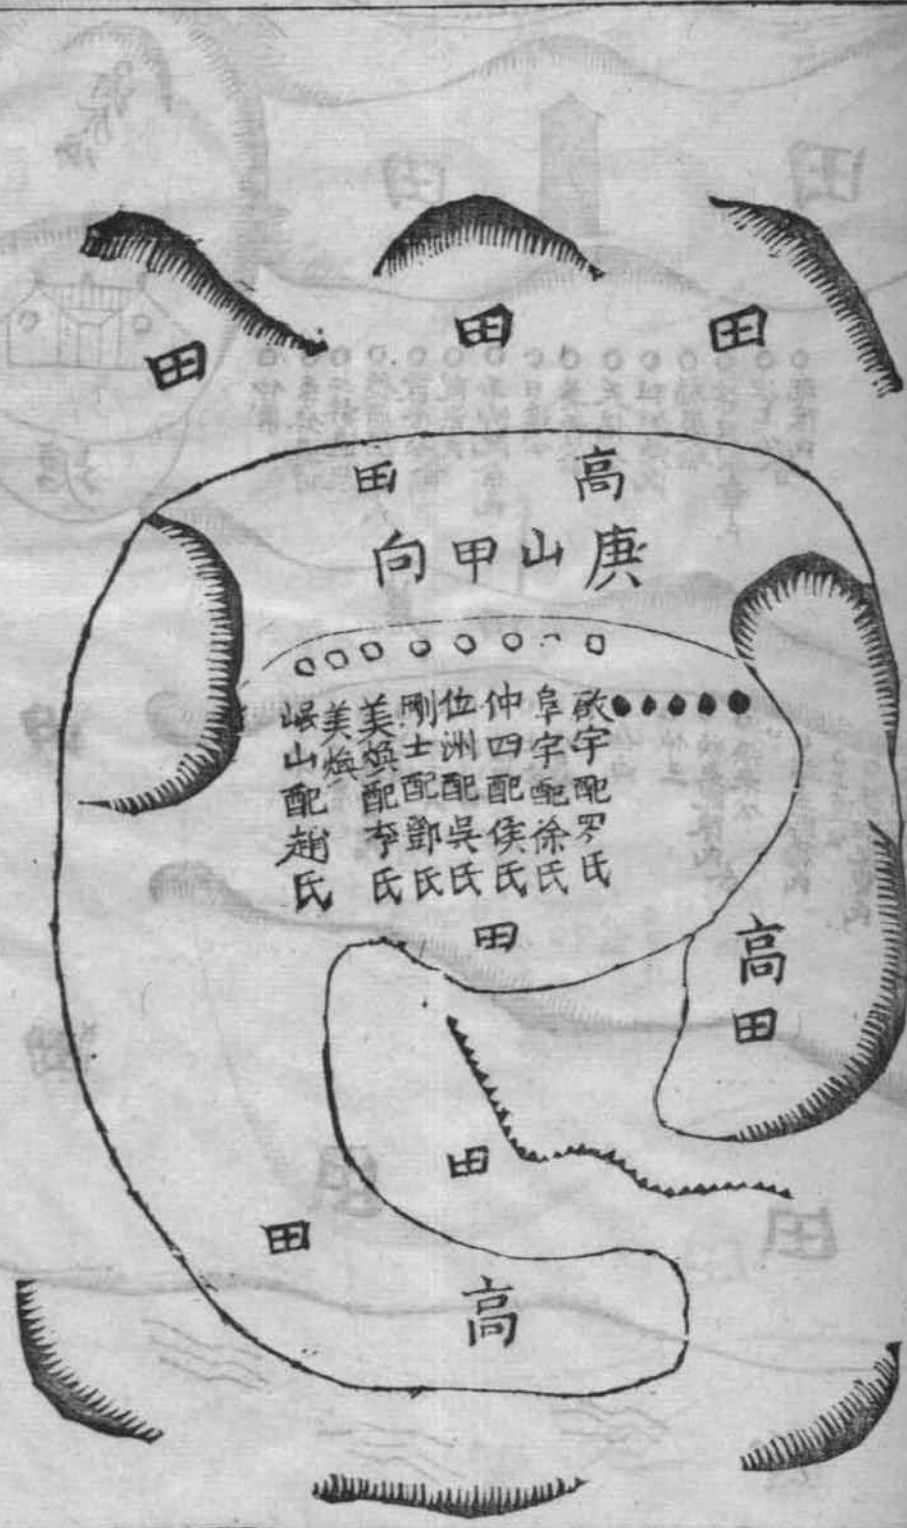 田
田
田
高
田
庚山甲向
啟宇配罗氏
阜宇配徐氏
仲四配侯氏
位洲配吳氏
剛士配鄧氏
美煥配李氏
美煥
岷山配趙氏
田
高田
田
田
高